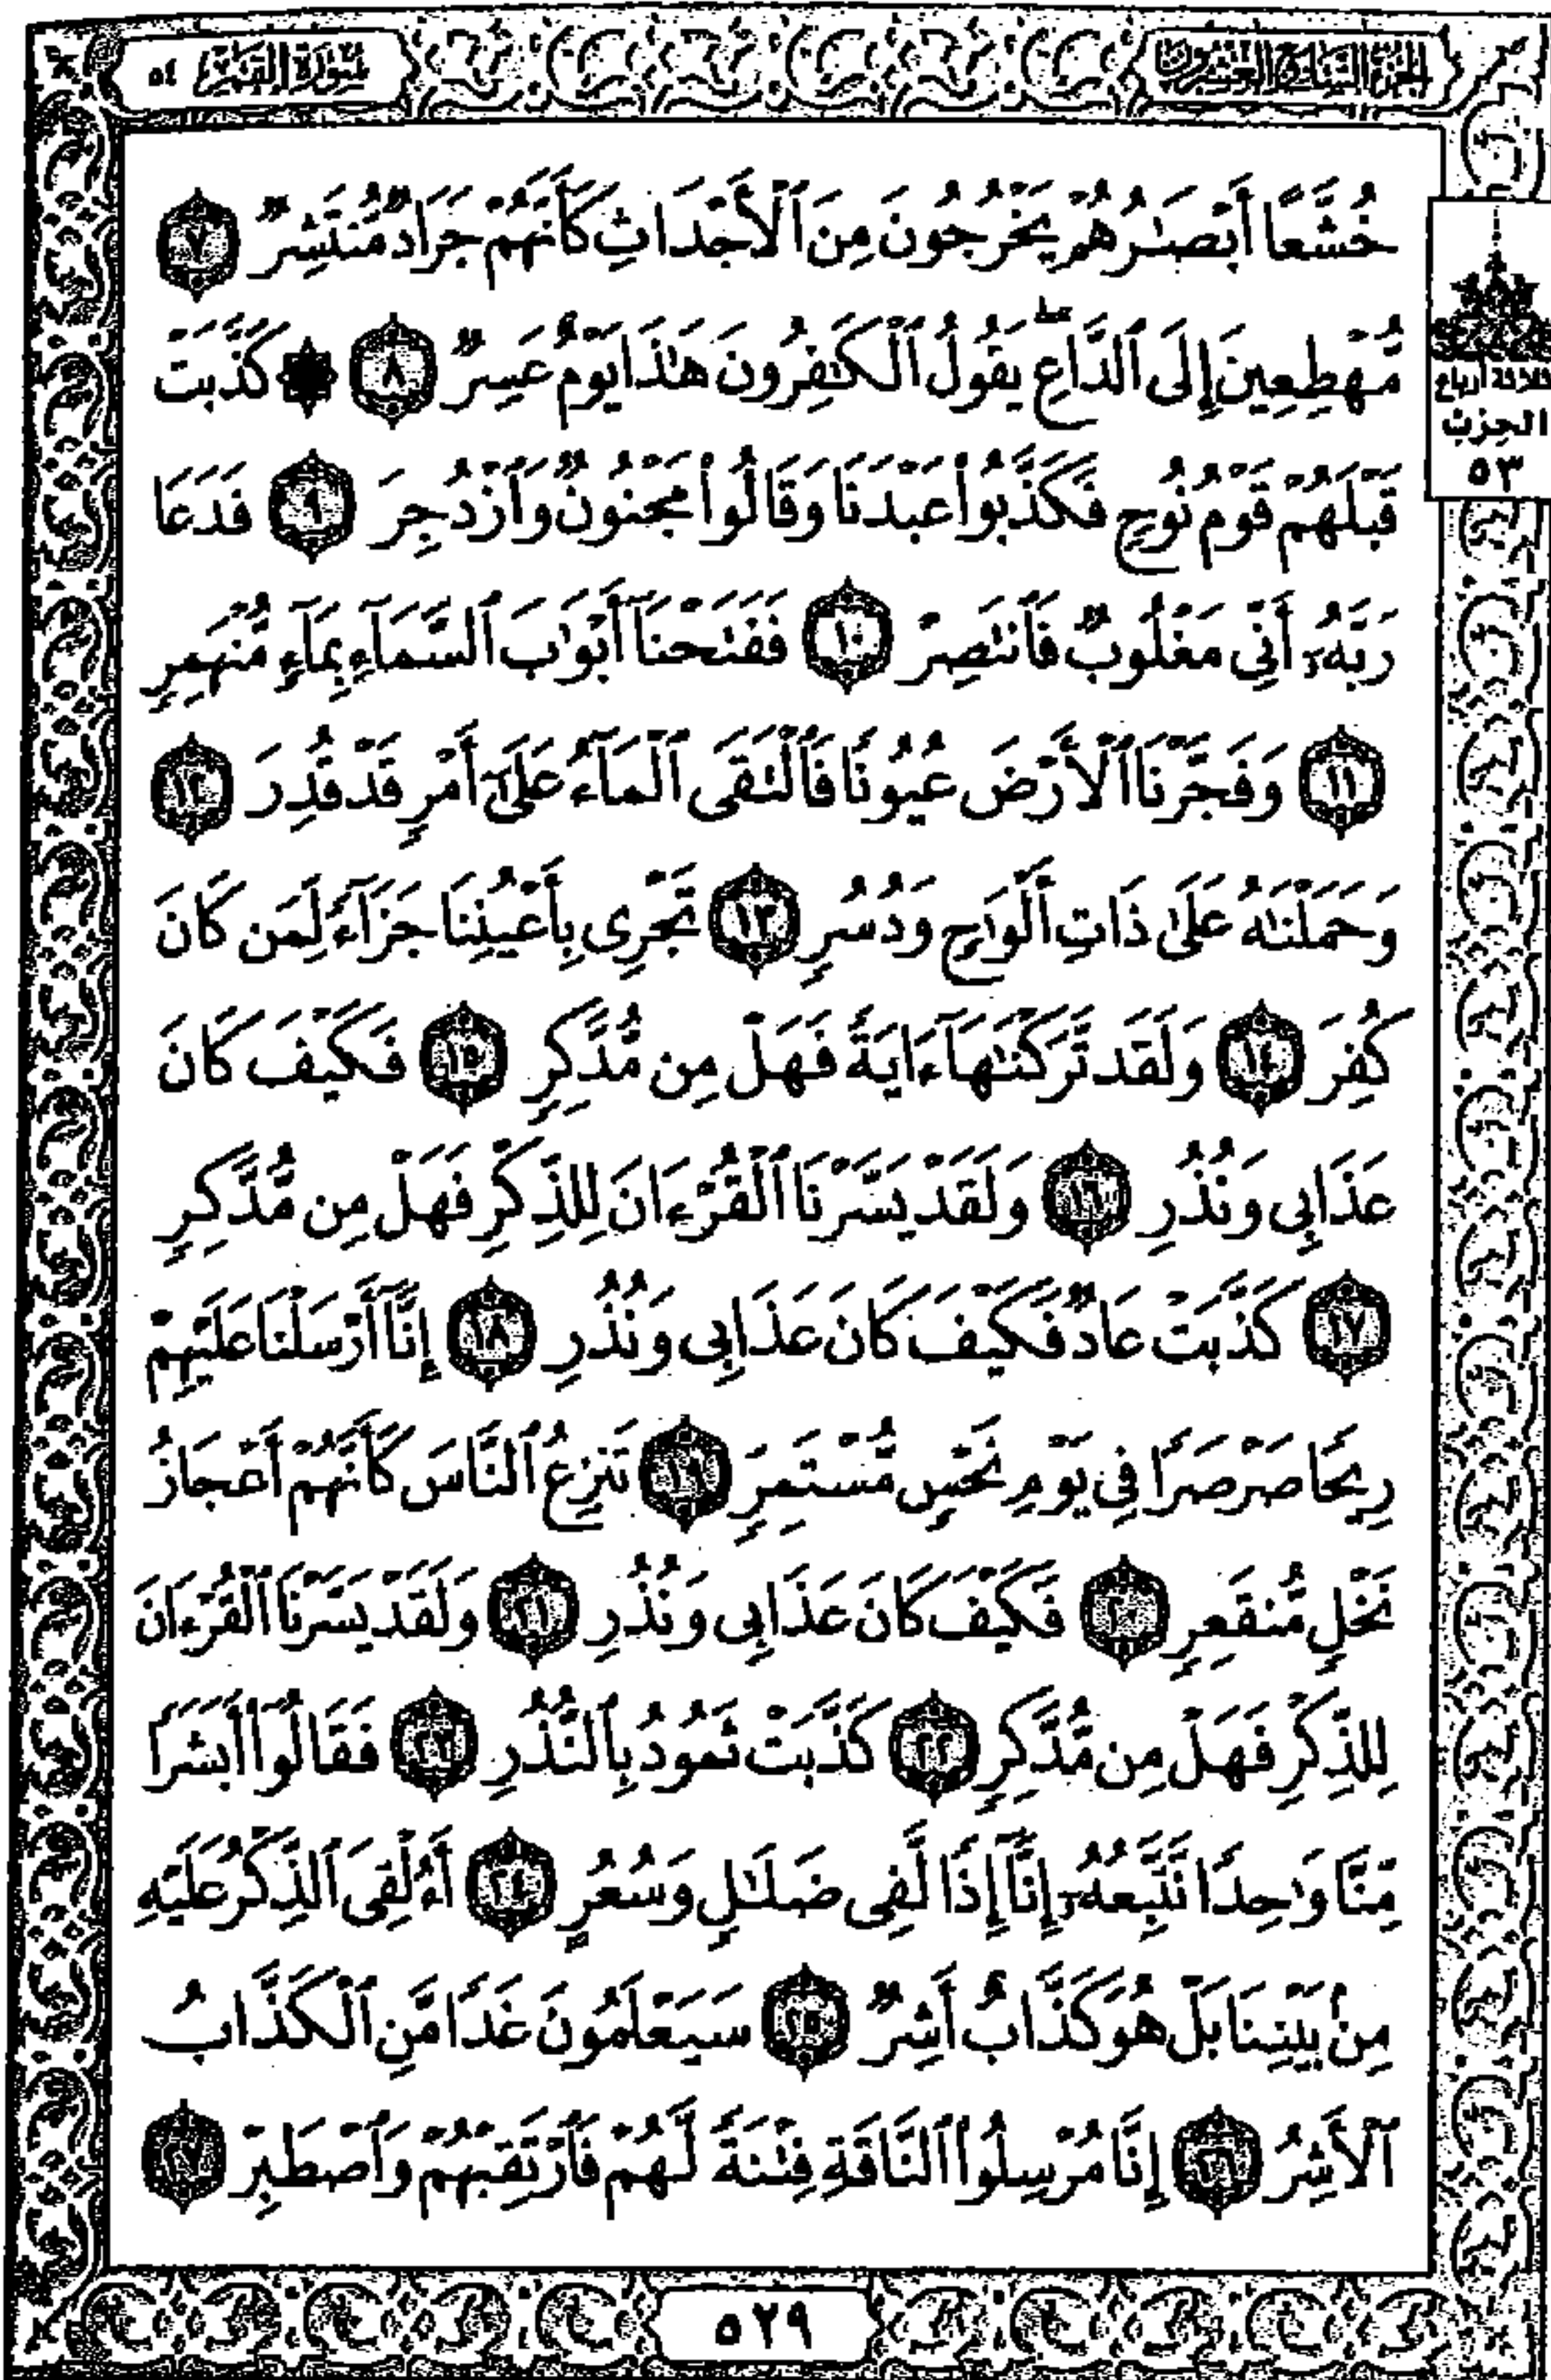 الجزء السابع والعشرون
سورة القمر ٥٤
خُشَّعًا أَبْصَـٰرُهُمْ يَخْرُجُونَ مِنَ ٱلْأَجْدَاثِ كَأَنَّهُمْ جَرَادٌ مُّنتَشِرٌ ٧
مُّهْطِعِينَ إِلَى ٱلدَّاعِ ۖ يَقُولُ ٱلْكَـٰفِرُونَ هَـٰذَا يَوْمٌ عَسِرٌ ٨ ۞ كَذَّبَتْ
قَبْلَهُمْ قَوْمُ نُوحٍ فَكَذَّبُوا۟ عَبْدَنَا وَقَالُوا۟ مَجْنُونٌ وَٱزْدُجِرَ ٩ فَدَعَا
رَبَّهُۥٓ أَنِّى مَغْلُوبٌ فَٱنتَصِرْ ١٠ فَفَتَحْنَآ أَبْوَٰبَ ٱلسَّمَآءِ بِمَآءٍ مُّنْهَمِرٍ
١١ وَفَجَّرْنَا ٱلْأَرْضَ عُيُونًا فَٱلْتَقَى ٱلْمَآءُ عَلَىٰٓ أَمْرٍ قَدْ قُدِرَ ١٢
وَحَمَلْنَـٰهُ عَلَىٰ ذَاتِ أَلْوَٰحٍ وَدُسُرٍ ١٣ تَجْرِى بِأَعْيُنِنَا جَزَآءً لِّمَن كَانَ
كُفِرَ ١٤ وَلَقَد تَّرَكْنَـٰهَآ ءَايَةً فَهَلْ مِن مُّدَّكِرٍ ١٥ فَكَيْفَ كَانَ
عَذَابِى وَنُذُرِ ١٦ وَلَقَدْ يَسَّرْنَا ٱلْقُرْءَانَ لِلذِّكْرِ فَهَلْ مِن مُّدَّكِرٍ
١٧ كَذَّبَتْ عَادٌ فَكَيْفَ كَانَ عَذَابِى وَنُذُرِ ١٨ إِنَّآ أَرْسَلْنَا عَلَيْهِمْ
رِيحًا صَرْصَرًا فِى يَوْمِ نَحْسٍ مُّسْتَمِرٍّ ١٩ تَنزِعُ ٱلنَّاسَ كَأَنَّهُمْ أَعْجَازُ
نَخْلٍ مُّنقَعِرٍ ٢٠ فَكَيْفَ كَانَ عَذَابِى وَنُذُرِ ٢١ وَلَقَدْ يَسَّرْنَا ٱلْقُرْءَانَ
لِلذِّكْرِ فَهَلْ مِن مُّدَّكِرٍ ٢٢ كَذَّبَتْ ثَمُودُ بِٱلنُّذُرِ ٢٣ فَقَالُوٓا۟ أَبَشَرًا
مِّنَّا وَٰحِدًا نَّتَّبِعُهُۥٓ إِنَّآ إِذًا لَّفِى ضَلَـٰلٍ وَسُعُرٍ ٢٤ أَءُلْقِىَ ٱلذِّكْرُ عَلَيْهِ
مِنۢ بَيْنِنَا بَلْ هُوَ كَذَّابٌ أَشِرٌ ٢٥ سَيَعْلَمُونَ غَدًا مَّنِ ٱلْكَذَّابُ
ٱلْأَشِرُ ٢٦ إِنَّا مُرْسِلُوا۟ ٱلنَّاقَةِ فِتْنَةً لَّهُمْ فَٱرْتَقِبْهُمْ وَٱصْطَبِرْ ٢٧
ثلاثة أرباع
الحزب
٥٣
٥٢٩